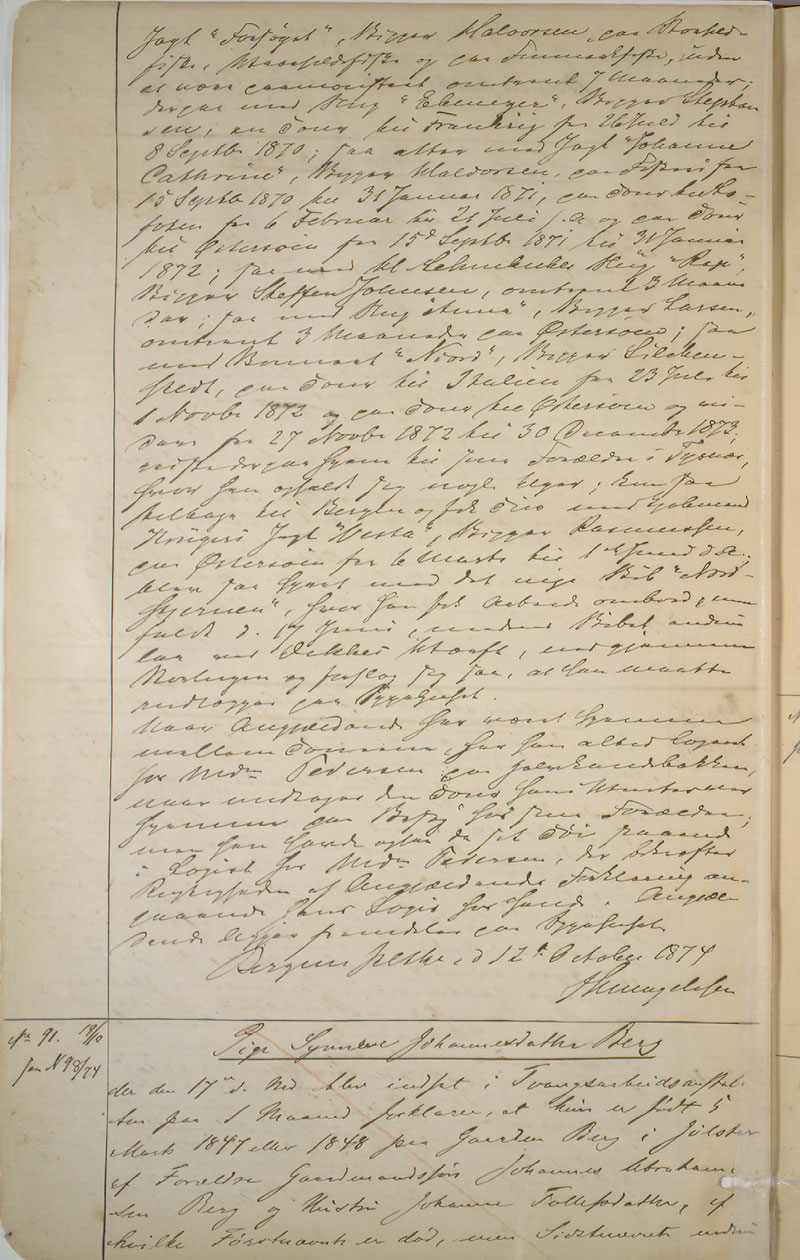 Jagt "Forsøget", Skipper Halvorsen, paa Storsild-
fiske, Vaarsildfiske og paa Finmarkfiske, uden
at være paamønstret omtrent 7 Maaneder;
derpaa med Brig "Ebenezer", Skipper Stephan
sen, en Tour til Frankrig fra 26 Juli til
8 Septbr 1870; saa atter med Jagt "Johanne
Cathrine", Skipper Halvorsen, paa Fiskeri fra
15 Septbr 1870 til 31 Januar 1871, paa Tour til Lo-
foten fra 6 Februar til 21 Juli s. A. og paa Tour
til Østersøen fra 15d Septbr 1871 til 31 Januar
1872; saa med Brig "Rap",
Skipper Steffen Johnsen, omtrent 3 Maane
der; saa med Brig "Anna", Skipper Larsen,
omtrent 3 Maaneder paa Østersøen; saa
med "Niord", Skipper
paa Tour til Italien fra 23 Juli til
1 Novbr 1872 og paa Tour til Østersøen og vi-
dere fra 27 Novbr 1872 til 30 December 1873;
reiste derpaa hjem til sine Forældre i Tysnæs,
hvor han opholdt sig nogle Uger; kom saa
tilbage til Bergen og fik Hire med
Krügers Jagt "Vesta", Skipper Rasmussen,
paa Østersøen fra 6 Marts til 1ste Juni d. A.;
blev saa hyret med det nye Skib "Nord-
stjernen", hvor han fik Arbeide ombord, men
faldt d. 17 Juni, medens Skibet endnu
laa ved Dekkes Værft, ned gjennem
og forslog sig saa, at han maatte
indlægges paa Sygehuset.
Naar Angjældende har været hjemme
mellem Tourene, har han altid logeret
hos Mdm Pedersen paa
naar undtages den Tour han
hjemme paa Besøg hos sine Forældre;
men han havde ogsaa da sit Tøi staaende
i Logiet hos Mdm Pedersen, der bekræfter
Rigtigheden af Angjældendes Forklaring an-
gaaende hans Logis hos hende. Angjæl-
dende ligger fremdeles paa Sygehuset.
Bergens d 12te October 1874

No 91. 19/10
Pige Synneve Johannesdatter Berg
der den 17de d. Md blev indsat i Tvangsarbeidsanstal-
ten paa 1 Maaned forklarer, at hun er født 5
Marts 1847 eller 1848 paa Gaarden Berg i Jølster
af Forældre Gaardmandssøn Johannes Abraham-
sen Berg og Hustru Johanne Tollefsdatter, af
hvilke Førstnævnte er død, men Sidstnævnte endnu